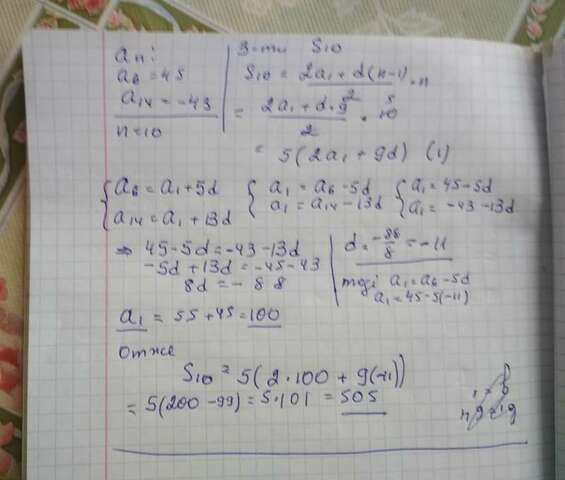 aₙ:
a₆ = 45
a₁₄ = -43
n = 10
З-ти S₁₀
S₁₀ = (2a₁ + d(n-1))/2 · n
= (2a₁ + d·9)/2 · 10 5
= 5(2a₁ + 9d) (1)
{ a₆ = a₁ + 5d { a₁ = a₆ - 5d { a₁ = 45 - 5d
a₁₄ = a₁ + 13d a₁ = a₁₄ - 13d a₁ = -43 - 13d
⇒ 45 - 5d = -43 - 13d
-5d + 13d = -45 - 43
8d = -88
d = -88/8 = -11
тоді a₁ = a₆ - 5d
a₁ = 45 - 5(-11)
a₁ = 55 + 45 = 100
Отже
S₁₀ = 5(2·100 + 9(-11))
= 5(200 - 99) = 5·101 = 505